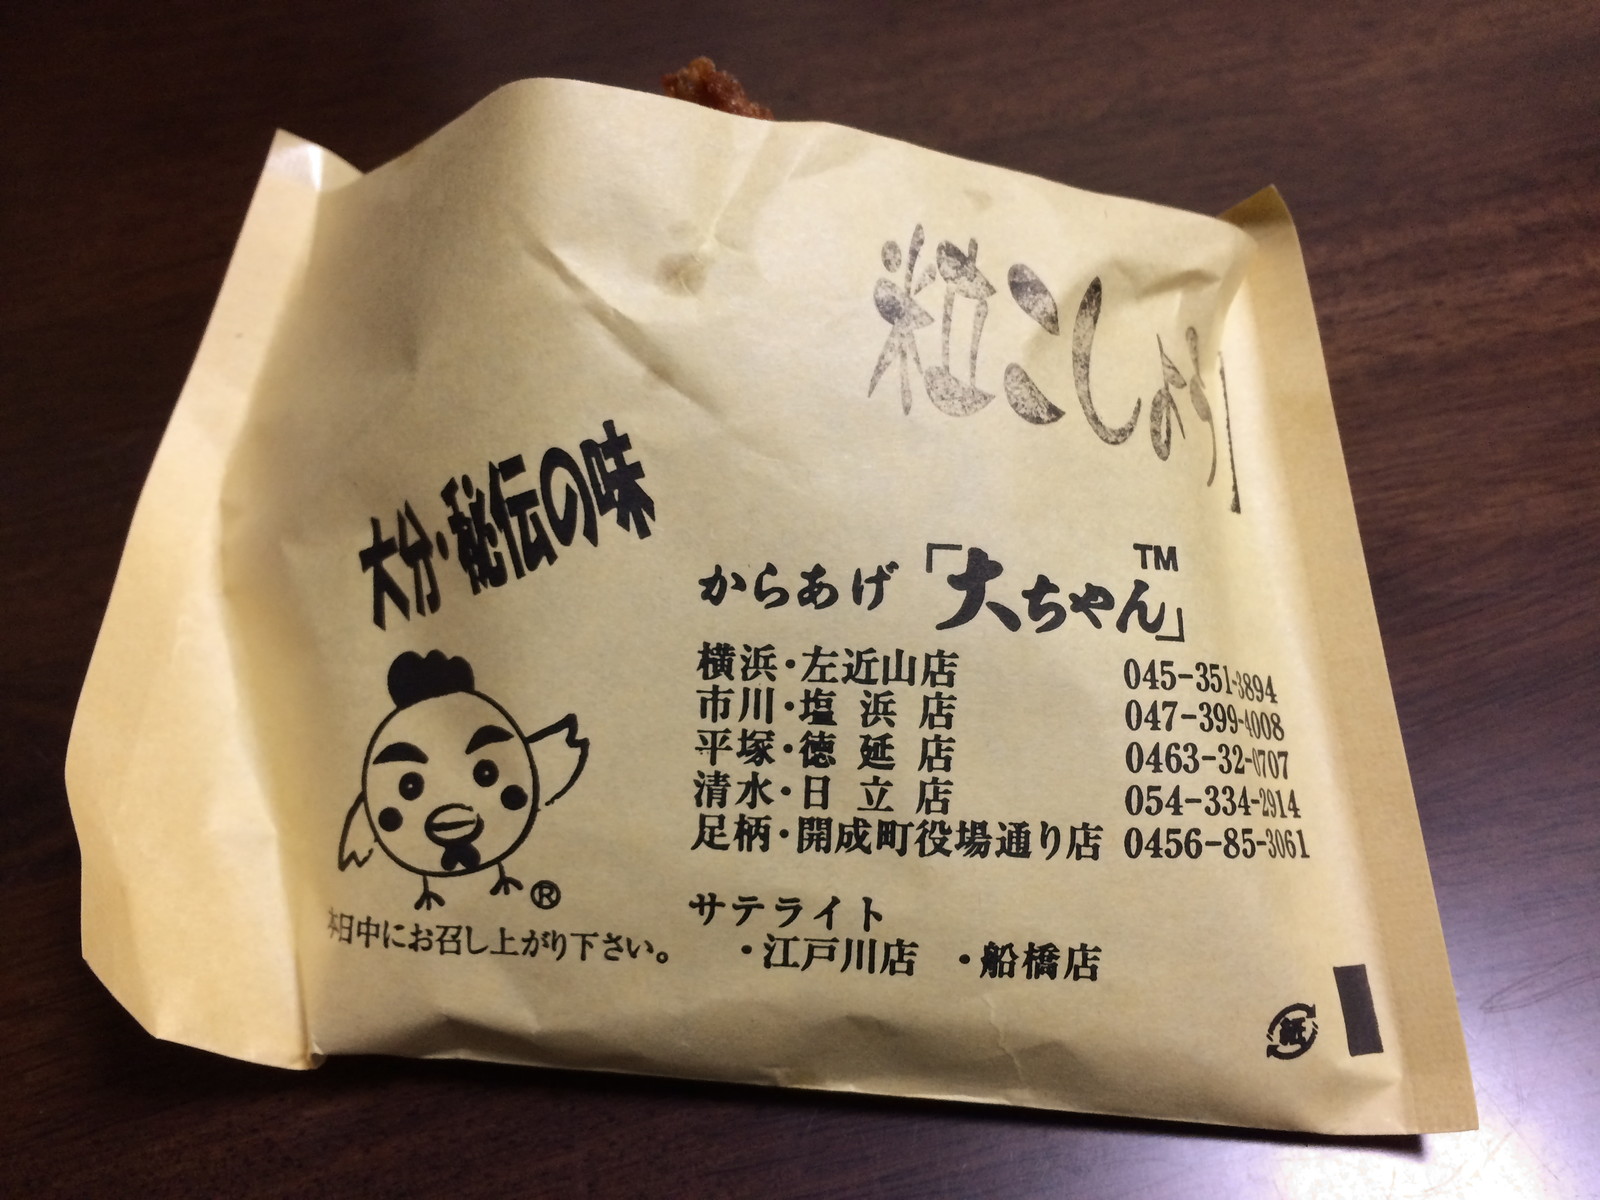 粒こしょう
大分・秘伝の味
からあげ「大ちゃん」TM
横浜・左近山店 045-351-3894
市川・塩浜店 047-399-4008
平塚・徳延店 0463-32-0707
清水・日立店 054-334-2914
足柄・開成町役場通り店 0456-85-3061
®
本日中にお召し上がり下さい。
サテライト
・江戸川店 ・船橋店
紙